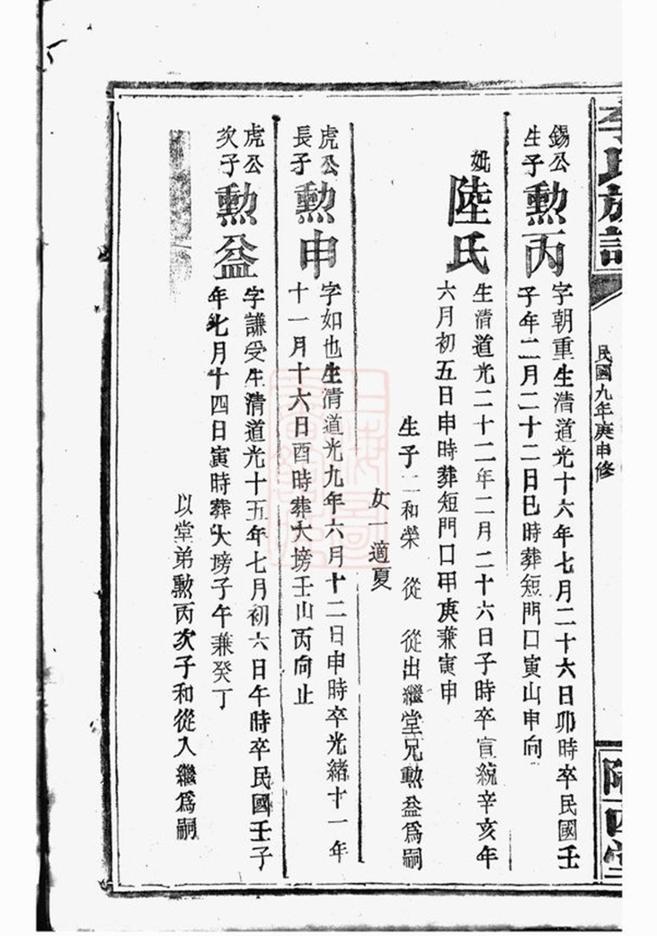 李氏族譜
民國九年庚申修
隴西堂
錫公
生子
勲丙
字朝重生清道光十六年七月二十六日卯時卒民國壬
子年二月二十二日巳時葬短門口寅山申向
妣
陸氏
生清道光二十二年二月二十六日子時卒宣統辛亥年
六月初五日申時葬短門口甲庚兼寅申
生子二和榮 從 從出繼堂兄勲益爲嗣
女一適夏
虎公
長子
勲申
字如也生清道光九年六月十二日申時卒光緒十一年
十一月十六日酉時葬大塝壬山丙向止
虎公
次子
勲益
字謙受生清道光十五年七月初六日午時卒民國壬子
年七月十四日寅時葬大塝子午兼癸丁
以堂弟勲丙次子和從入繼爲嗣